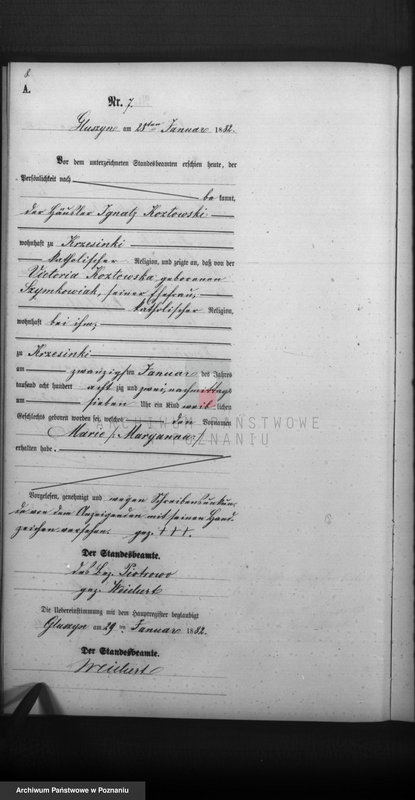 8.
A.
Nr. 7.
Gluszyn am 28ten Januar 1882.
Vor dem unterzeichneten Standesbeamten erschien heute, der
Persönlichkeit nach
be kannt,
der Häusler Ignatz Kozlowski
wohnhaft zu Krzesinki
katholischer Religion, und zeigte an, daß von der
Victoria Kozlowska geborenen
Szymkowiak, seiner Ehefrau,
katholischer Religion,
wohnhaft bei ihm,
zu Krzesinki
am zwanzigsten Januar des Jahres
tausend acht hundert acht zig und zwei, nachmittags
um sieben Uhr ein Kind weib lichen
Geschlechts geboren worden sei, welches den Vornamen
Marie /: Maryanna :/
erhalten habe.
Vorgelesen, genehmigt und wegen Schreibensunkun
de von dem Anzeigenden mit seinen Hand
zeichen versehen. gez. +++.
Der Standesbeamte.
des Bez. Piotrowo
gez. Weichert
Die Uebereinstimmung mit dem Hauptregister beglaubigt
Gluszyn am 29 ten Januar 1882.
Der Standesbeamte.
Weichert
ARCHIWUM PAŃSTWOWE
W POZNANIU
Archiwum Państwowe w Poznaniu